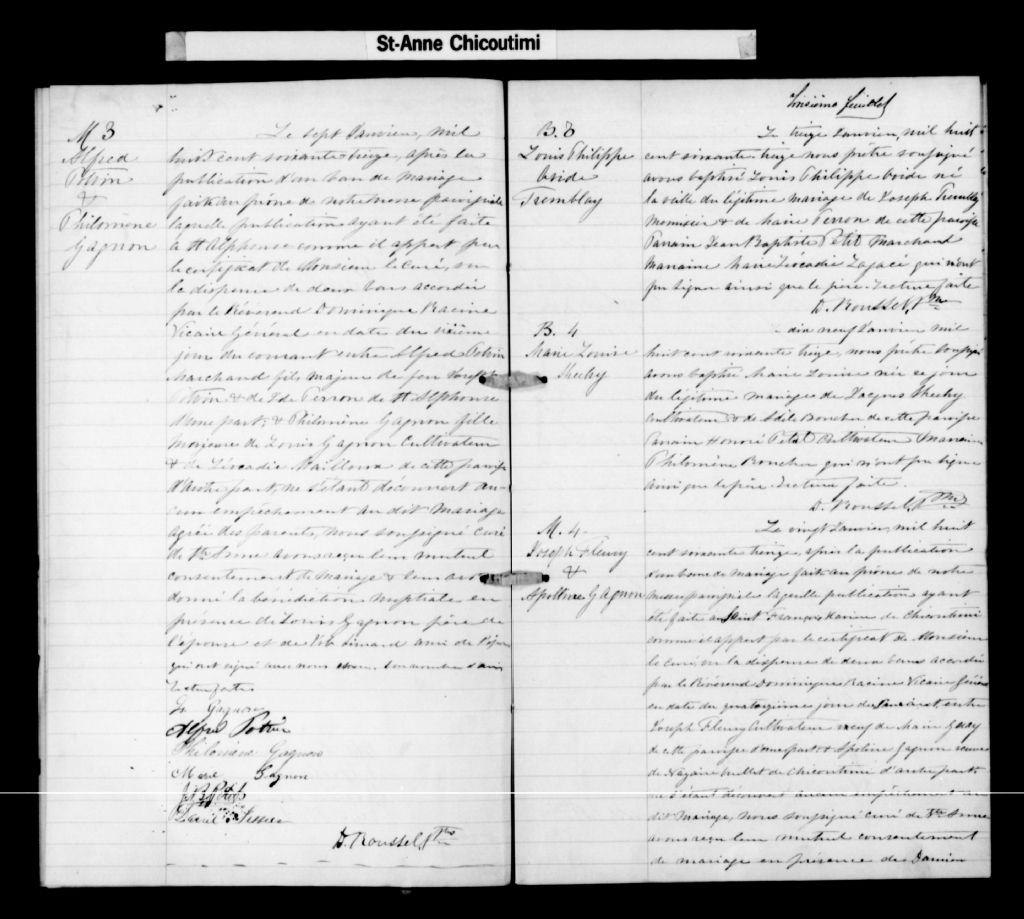 St-Anne Chicoutimi
M 3
Alfred
Potvin
&
Philomène
Gagnon
Le sept Janvier, mil
huit cent soixante treize, après la
publication d'un ban de mariage
faite au prône de notre messe paroissiale
laquelle publication ayant été faite
à St Alphonse comme il appert par
le certificat de Monsieur le Curé, vu
la dispense de deux bans accordée
par le Révérend Dominique Racine
Vicaire Général en date du
jour du courant entre Alfred Potvin
Marchand fils majeur de feu Joseph
Potvin & de Perron de St Alphonse
d'une part; & Philomène Gagnon fille
majeure de Louis Gagnon Cultivateur
& de Léocadie Mailloux de cette paroisse
d'autre part, ne s'étant découvert au-
cun empêchement au dit mariage
agréé des parents, nous soussigné curé
de Ste Anne avons reçu leur mutuel
consentement de mariage & leur avons
donné la bénédiction nuptiale en
présence de Louis Gagnon père de
l'épouse et de Simard ami de l'époux
qui ont signé avec nous
Lecture faite
Ls Gagnon
Alfred Potvin
Philomène Gagnon
Marie Gagnon
D. Roussel, Ptre
Troisième feuillet
B. 3
Louis Philippe
Ovide
Tremblay
Le treize Janvier, mil huit
cent soixante treize nous prêtre soussigné
avons baptisé Louis Philippe Ovide né
la veille du légitime mariage de Joseph Tremblay
Menuisier & de Marie Perron de cette paroisse
Parrain Jean Baptiste Petit Marchand
Marraine Marie Léocadie Lajacé qui n'ont
pu signer ainsi que le père. Lecture faite
D. Roussel, Ptre
B. 4
Marie Louise
Sheehy
dix neuf Janvier mil
huit cent soixante treize, nous prêtre soussigné
avons baptisé Marie Louise née ce jour
du légitime mariage de Jacques Sheehy
Cultivateur & de Adèle Boucher de cette paroisse
Parrain Honoré Petit Cultivateur Marraine
Philomène Boucher qui n'ont pu signer
ainsi que le père. Lecture faite.
D. Roussel, Ptre
M. 4
Joseph Fleury
&
Apolline Gagnon
Le vingt Janvier, mil huit
cent soixante treize, après la publication
d'un banc de mariage faite au prône de notre
messe paroissiale laquelle publication ayant
été faite au Saint François Xavier de Chicoutimi
comme il appert par le certificat de Monsieur
le Curé, vu la dispense de deux bans accordée
par le Révérend Dominique Racine Vicaire Général
en date du quatorzième jour du courant, entre
Joseph Fleury Cultivateur veuf de Marie
de cette paroisse d'une part; & Apoline Gagnon veuve
de Nazaire de Chicoutimi d'autre part;
ne s'étant découvert aucun empêchement au
dit mariage, nous soussigné curé de Ste Anne
avons reçu leur mutuel consentement
de mariage en présence de Damien